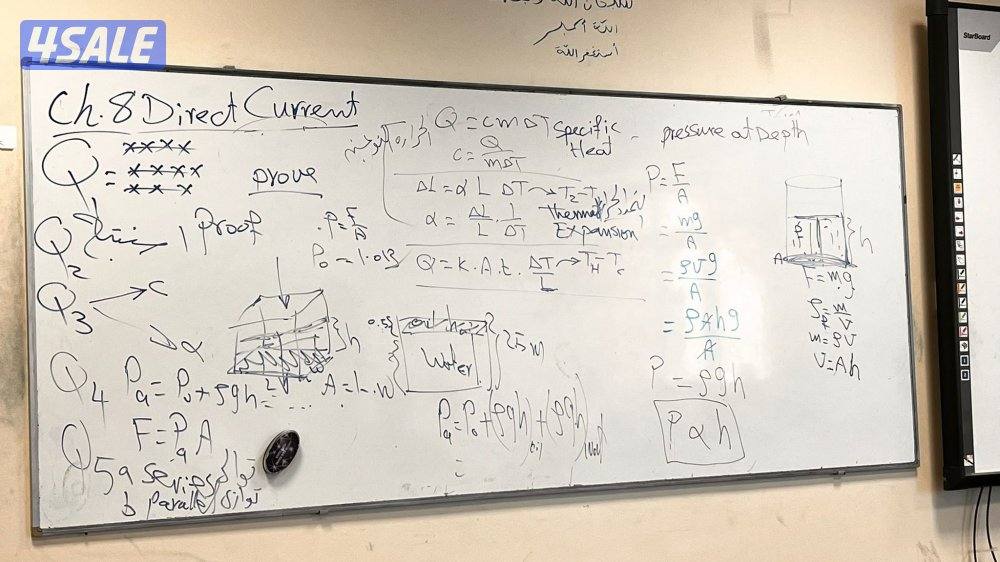 4SALE
الله أكبر
أستغفر الله
StarBoard
Ch.8 Direct Current
Q = xxxx
xxxx
xxx
prove
Q2
1 Proof
Q3
C
α
Q4 Pa = P0 + ρgh = ....
F = Pa A
Q5 a series توالي
b parallel توازي
P = F/A
P0 = 1.013
h
A = L.W
Q = cmΔT specific Heat
c = Q/mΔT
ΔL = α L ΔT → T2 - T1
α = ΔL/L . 1/ΔT Thermal Expansion
Q = K.A.t. ΔT/L → TH - Tc
oil
Water
25 m
Pa = P0 + (ρgh)oil + (ρgh)
=
pressure at Depth
P = F/A
= mg/A
= ρVg/A
= ρAhg/A
P = ρgh
P α h
h
A
F = mg
ρ = m/V
m = ρV
V = Ah